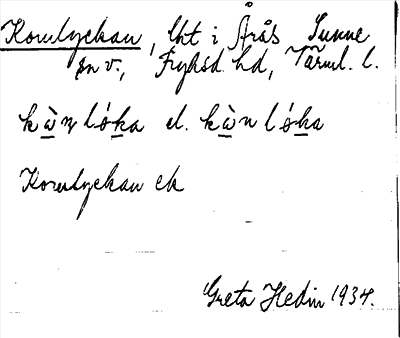 Kornlyckan, lht i Årås Sunne
sn v., Fryksd. hd, Värml. l.
kὼn lóka el. kὼn lóka
Kornlyckan ek
Greta Hedin 1934.